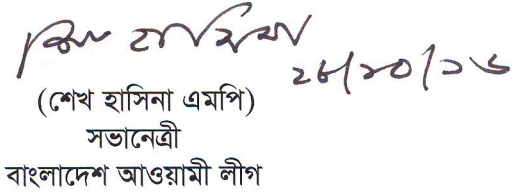 শেখ হাসিনা
২৮/১০/১৬
(শেখ হাসিনা এমপি)
সভানেত্রী
বাংলাদেশ আওয়ামী লীগ